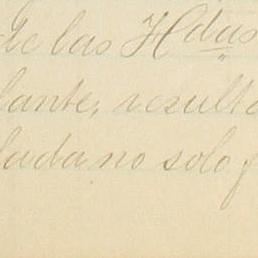 de las Hdas
lante, resulta
lada no solo